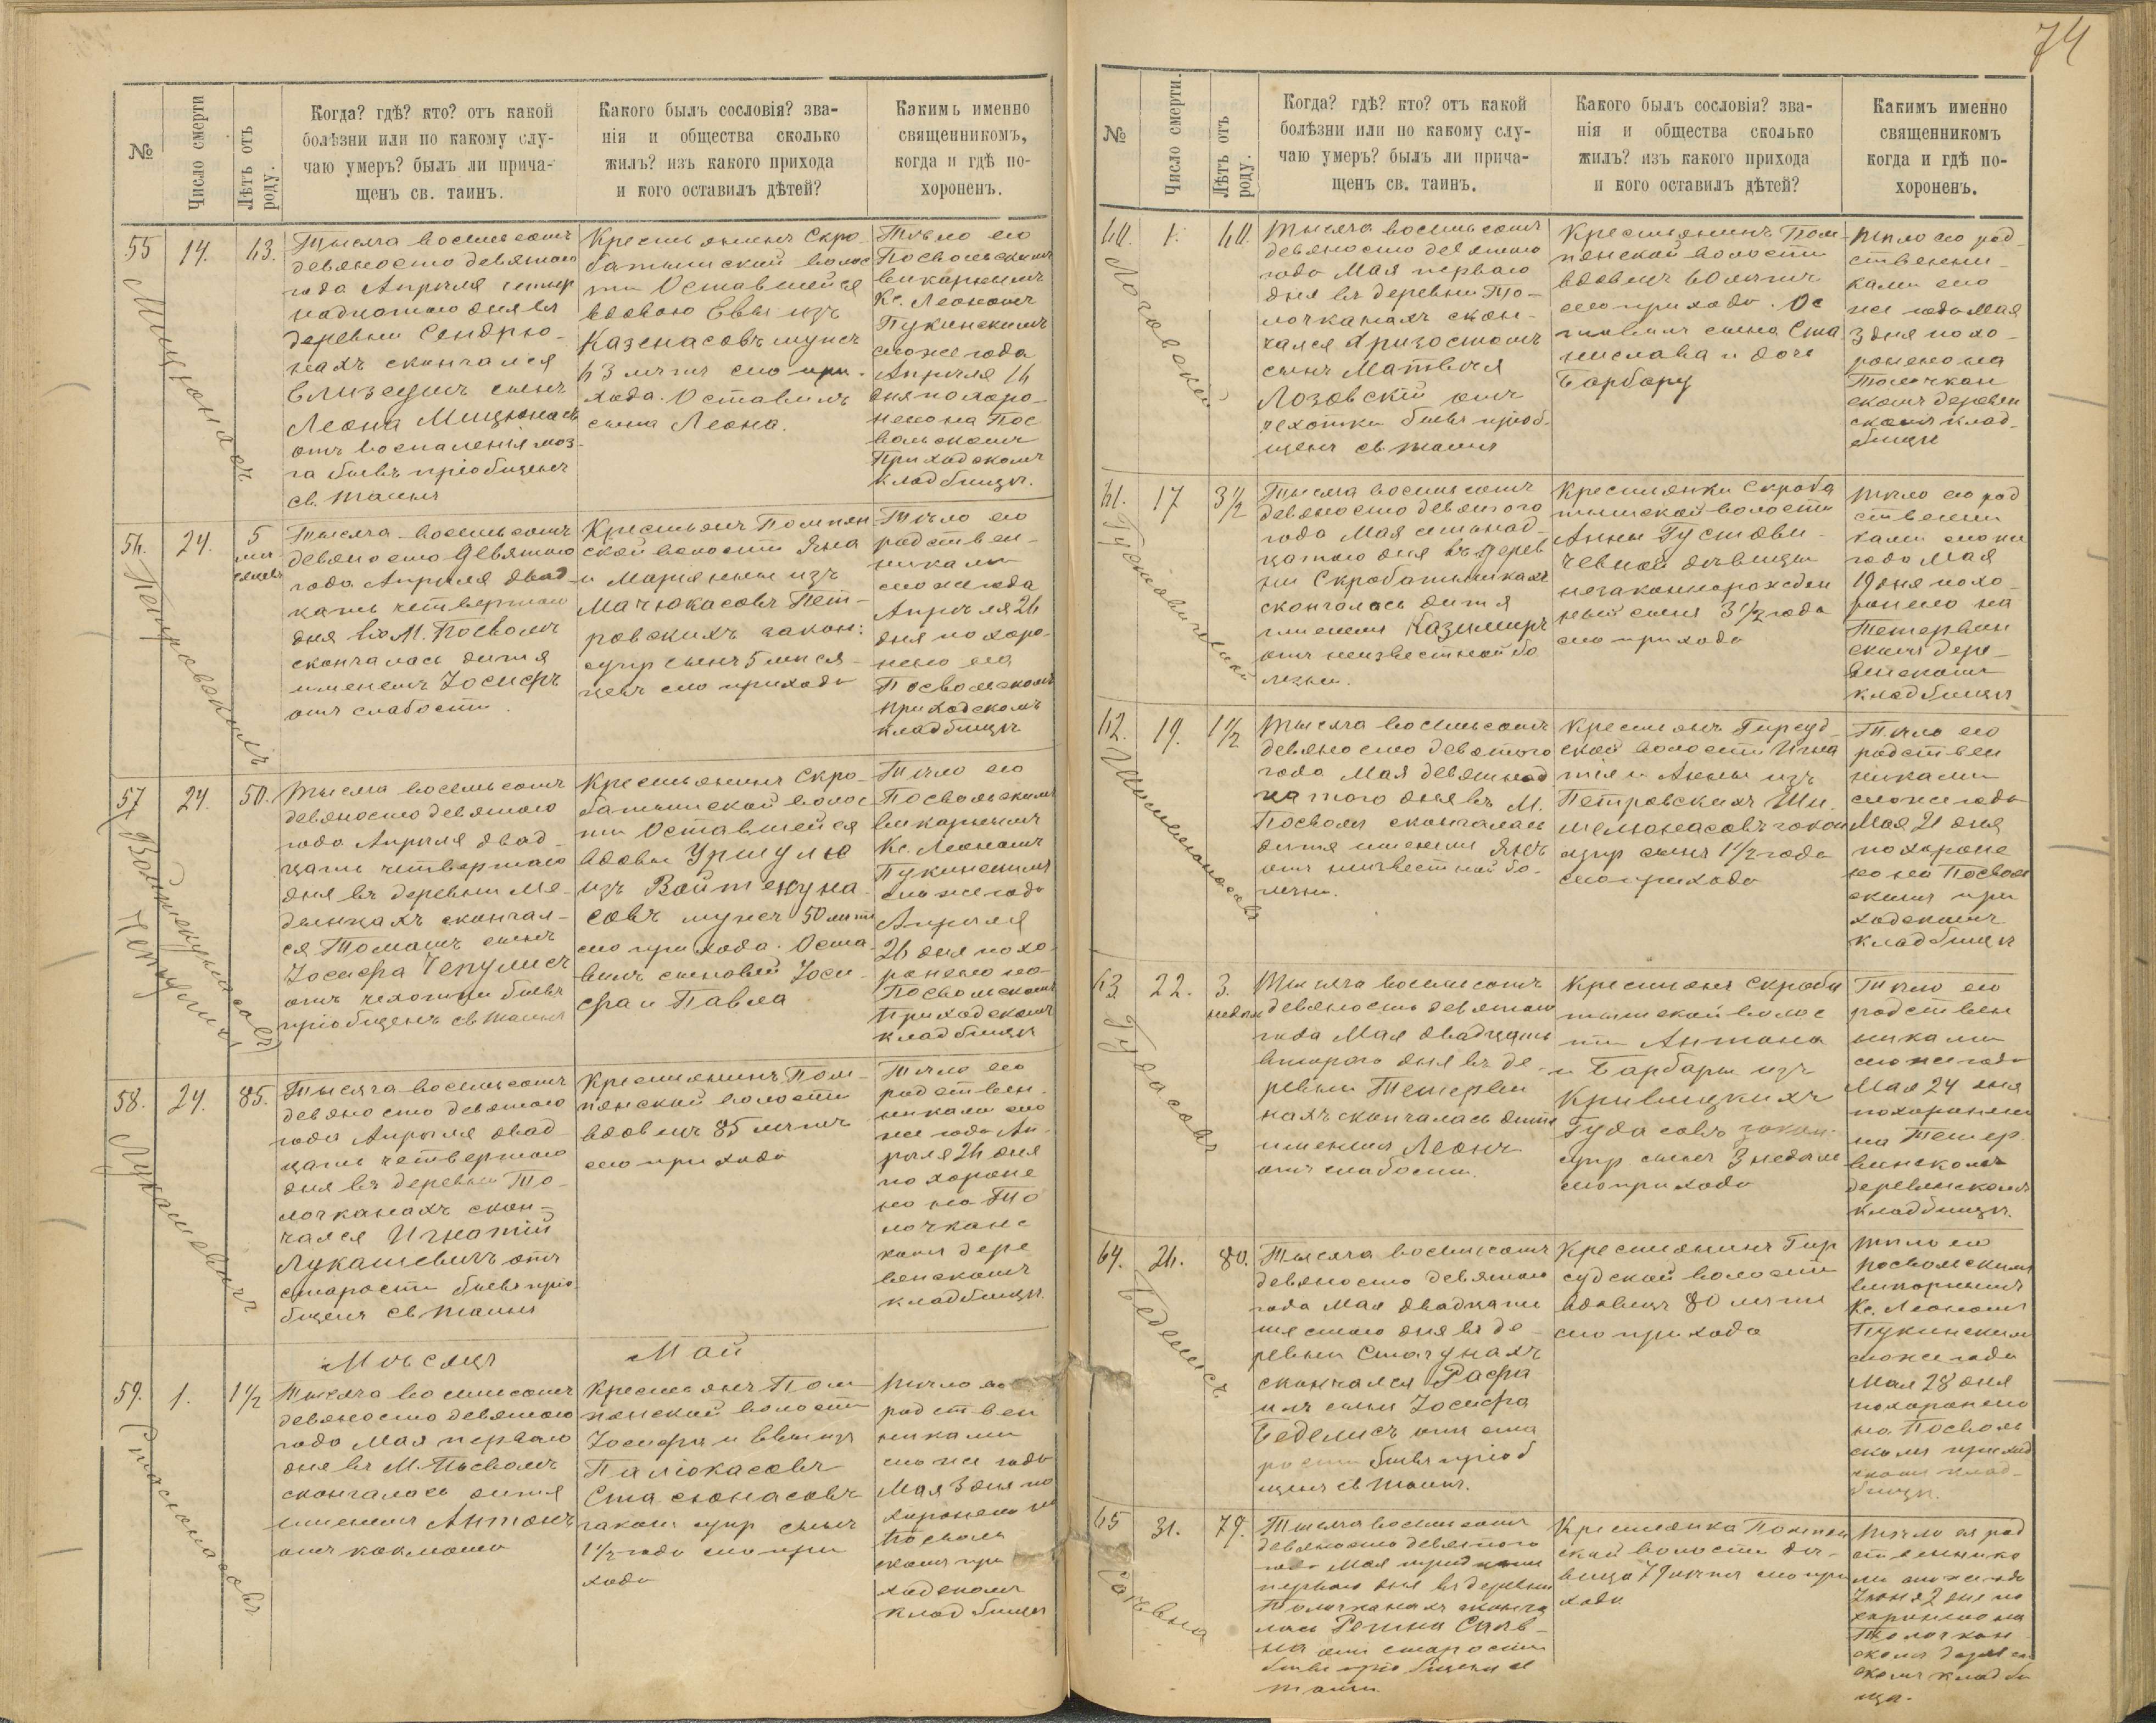 74
№
Число смерти
Лѣтъ отъ роду.
Когда? гдѣ? кто? отъ какой
болѣзни или по какому слу-
чаю умеръ? былъ ли прича-
щенъ св. таинъ.
Какого былъ сословія? зва-
нія и общества сколько
жилъ? изъ какого прихода
и кого оставилъ дѣтей?
Какимъ именно
священникомъ,
когда и гдѣ по-
хороненъ.
55
14.
43.
Тысяча восемьсотъ
девяносто девятого
года Апрѣля четыр
надцатого дня въ
деревни Сендрю-
нахъ скончался
Елизеушъ сынъ
Леона Мицюнасъ
отъ воспаленія моз-
га бывъ пріобщенъ
св. Таинъ
Крестьянинъ Скро-
батышской волос
ти Оставшейся
вдовою Евы изъ
Казенасовъ мужъ
43 лѣтъ сего при-
хода. Оставилъ
сына Леона.
Тѣло его
Посвольскимъ
викарнымъ
Кс. Леономъ
Пукинскимъ
сего же года
Апрѣля 16
дня похоро-
нено на Пос
вольскомъ
Приходскомъ
кладбищѣ.
56.
24.
5
мѣ
сяцевъ
Петровскихъ
Тысяча восемьсотъ
девяносто девятого
года Апрѣля двад-
цать четвертого
дня въ М. Посволѣ
скончалась дитя
именемъ Іосифъ
отъ слабости.
Крестьянъ Помпян
ской волости Яна
и Маріянны изъ
Мачюкасовъ Пет-
ровскихъ закон:
супр сынъ 5 мѣся-
цевъ сего прихода
Тѣло его
родствен-
никами
сего же года
Апрѣля 26
дня похоро-
нено на
Посвольскомъ
приходскомъ
кладбищѣ
57
24.
50.
Тысяча восемьсотъ
девяносто девятого
года Апрѣля двад
цать четвертого
дня въ деревни Ме-
дынцахъ скончал-
ся Томашъ сынъ
Іосифа Чепулисъ
отъ чехотки бывъ
пріобщенъ св Таинъ
Крестьянинъ Скро-
батышской волос
ти Оставшейся
вдовы Уршулю
изъ Войтекуна-
совъ мужъ 50 лѣтъ
сего прихода. Оста-
вилъ сыновей Іоси-
фа и Павла
Тѣло его
Посвольскимъ
викарнымъ
Кс. Леономъ
Пукинскимъ
сего же года
Апрѣля
26 дня похо-
ронено на
Посвольскомъ
Приходскомъ
кладбищѣ
58.
24.
85.
Лукашевичъ
Тысяча восемьсотъ
девяносто девятого
года Апрѣля двад
цать четвертого
дня въ деревни То-
лочканахъ скон-
чался Игнатій
Лукашевичъ отъ
старости бывъ прі-
общенъ св Таинъ
Крестьянинъ Пом-
пянской волости
вдовецъ 85 лѣтъ
сего прихода
Тѣло его
родствен
никами сего
же года Ап-
рѣля 26 дня
похороне
но на То
лочканс
комъ дере
венскомъ
кладбищѣ.
Мѣсяцъ Май
59.
1.
1½
Стасюнасовъ
Тысяча восемьсотъ
девяносто девятого
года Мая перваго
дня въ М. Посволѣ
скончалась дитя
именемъ Антонъ
отъ коклюша
Крестьянъ Пом
пянской волости
Іосифа и Евы изъ
Палюкасовъ
Стасюнасовъ
закон супр сынъ
1½ года сего при
хода
Тѣло его
родствен
никами
сего же года
Мая 3 дня по
хоронено на
Посволь
скомъ при
ходскомъ
кладбищѣ
№
Число смерти.
Лѣтъ отъ роду.
Когда? гдѣ? кто? отъ какой
болѣзни или по какому слу-
чаю умеръ? былъ ли прича-
щенъ св. таинъ.
Какого былъ сословія? зва-
нія и общества сколько
жилъ? изъ какого прихода
и кого оставилъ дѣтей?
Какимъ именно
священникомъ
когда и гдѣ по-
хороненъ.
60.
1.
60.
Лозовскій
Тысяча восемьсотъ
девяносто девятого
года Мая перваго
дня въ деревни То-
лочканахъ скон-
чался Хризостомъ
сынъ Матвѣя
Лозовскій отъ
чехотки бывъ пріоб-
щенъ св Таинъ
Крестьянинъ Пом-
пянской волости
вдовецъ 60 лѣтъ
сего прихода. Ос
тавилъ сына Ста
нислава и дочь
Барбару
Тѣло его род-
ственни-
ками сего
же года Мая
3 дня похо-
ронено на
Толочкан
скомъ деревен
скомъ клад-
бищѣ
61.
17
3½
Тысяча восемьсотъ
девяносто девятого
года Мая семьнад-
цатого дня въ дерев
ни Скробатышкахъ
скончалась дитя
именемъ Казимиръ
отъ неизвестной бо
лезни.
Крестьянки Скроба
тышской волости
Анны Густови-
чевной дѣвицы
незаконнорожден
ный сынъ 3½ года
сего прихода
Тѣло его род
ственни
ками сего же
года Мая
19 дня похо-
ронено на
Тетервин
скомъ дере-
венскомъ
кладбищѣ
62.
19.
1½
Шимелюнасовъ
Тысяча восемьсотъ
девяносто девятого
года Мая девятнад
цатого дня въ М.
Посволѣ скончалась
дитя именемъ Янъ
отъ неизвестной бо-
лезни.
Крестьянъ Гирсуд-
ской волости Игна
тія и Анны изъ
Петровскихъ Ши-
мелюнасовъ закон
супр сынъ 1½ года
сего прихода
Тѣло его
родствен
никами
сего же года
Мая 21 дня
похороне
но на Посволь
скомъ при
ходскомъ
кладбищѣ
63
22.
3.
недѣли
Гудасовъ
Тысяча восемьсотъ
девяносто девятого
года Мая двадцать
второго дня въ де-
ревни Тетерви
нахъ скончалась дитя
именемъ Леонъ
отъ слабости.
Крестьянъ Скроба
тышской волос
ти Антона
и Барбары изъ
Кривицкихъ
Гудасовъ закон.
супр. сынъ 3 недѣли
сего прихода
Тѣло его
родствен
никами
сего же года
Мая 24 дня
похоронено
на Тетер-
винскомъ
деревенскомъ
кладбищѣ.
64.
26.
80.
Беделисъ
Тысяча восемьсотъ
девяносто девятого
года Мая двадцать
шестого дня въ де-
ревни Стачунахъ
скончался Рафа
илъ сынъ Іосифа
Беделисъ отъ ста
рости бывъ пріоб
щенъ св Таинъ.
Крестьянинъ Гир
судской волости
вдовецъ 80 лѣтъ
сего прихода
Тѣло его
Посвольскимъ
викарнымъ
Кс. Леономъ
Пукинскимъ
сего же года
Мая 28 дня
похоронено
на Посволь
скомъ приход
скомъ клад-
бищѣ.
65
31.
79.
Тысяча восемьсотъ
девяносто девятого
года Мая тридцать
перваго дня въ деревни
Толочканахъ сконча
лась
отъ старости
Крестьянка Помпян
ской волости дѣ-
вица 79 лѣтъ сего при
хода
Тѣло ея род
ственника
ми сего же года
Іюня 2 дня по
хоронено на
Толочкан
скомъ деревен
скомъ кладби
ща.